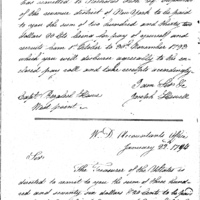 has remitted to Nicholas
of the revenue district of New York to be paid
to you the sum of two hundred and thirty two
dollars 40 Cts being for pay of yourself and
recruits from 1st October to 30th November 1793
which you will disburse agreeably to the en
closed pay roll and take receipts accordingly
I am Sir &c
Joseph Howell
Capt
West point
W. D. Accountants Office
January 23d 1794
Sir
The Treasurer of the UStates is
directed to remit to you the sum of three hund
red and seventy two dollars